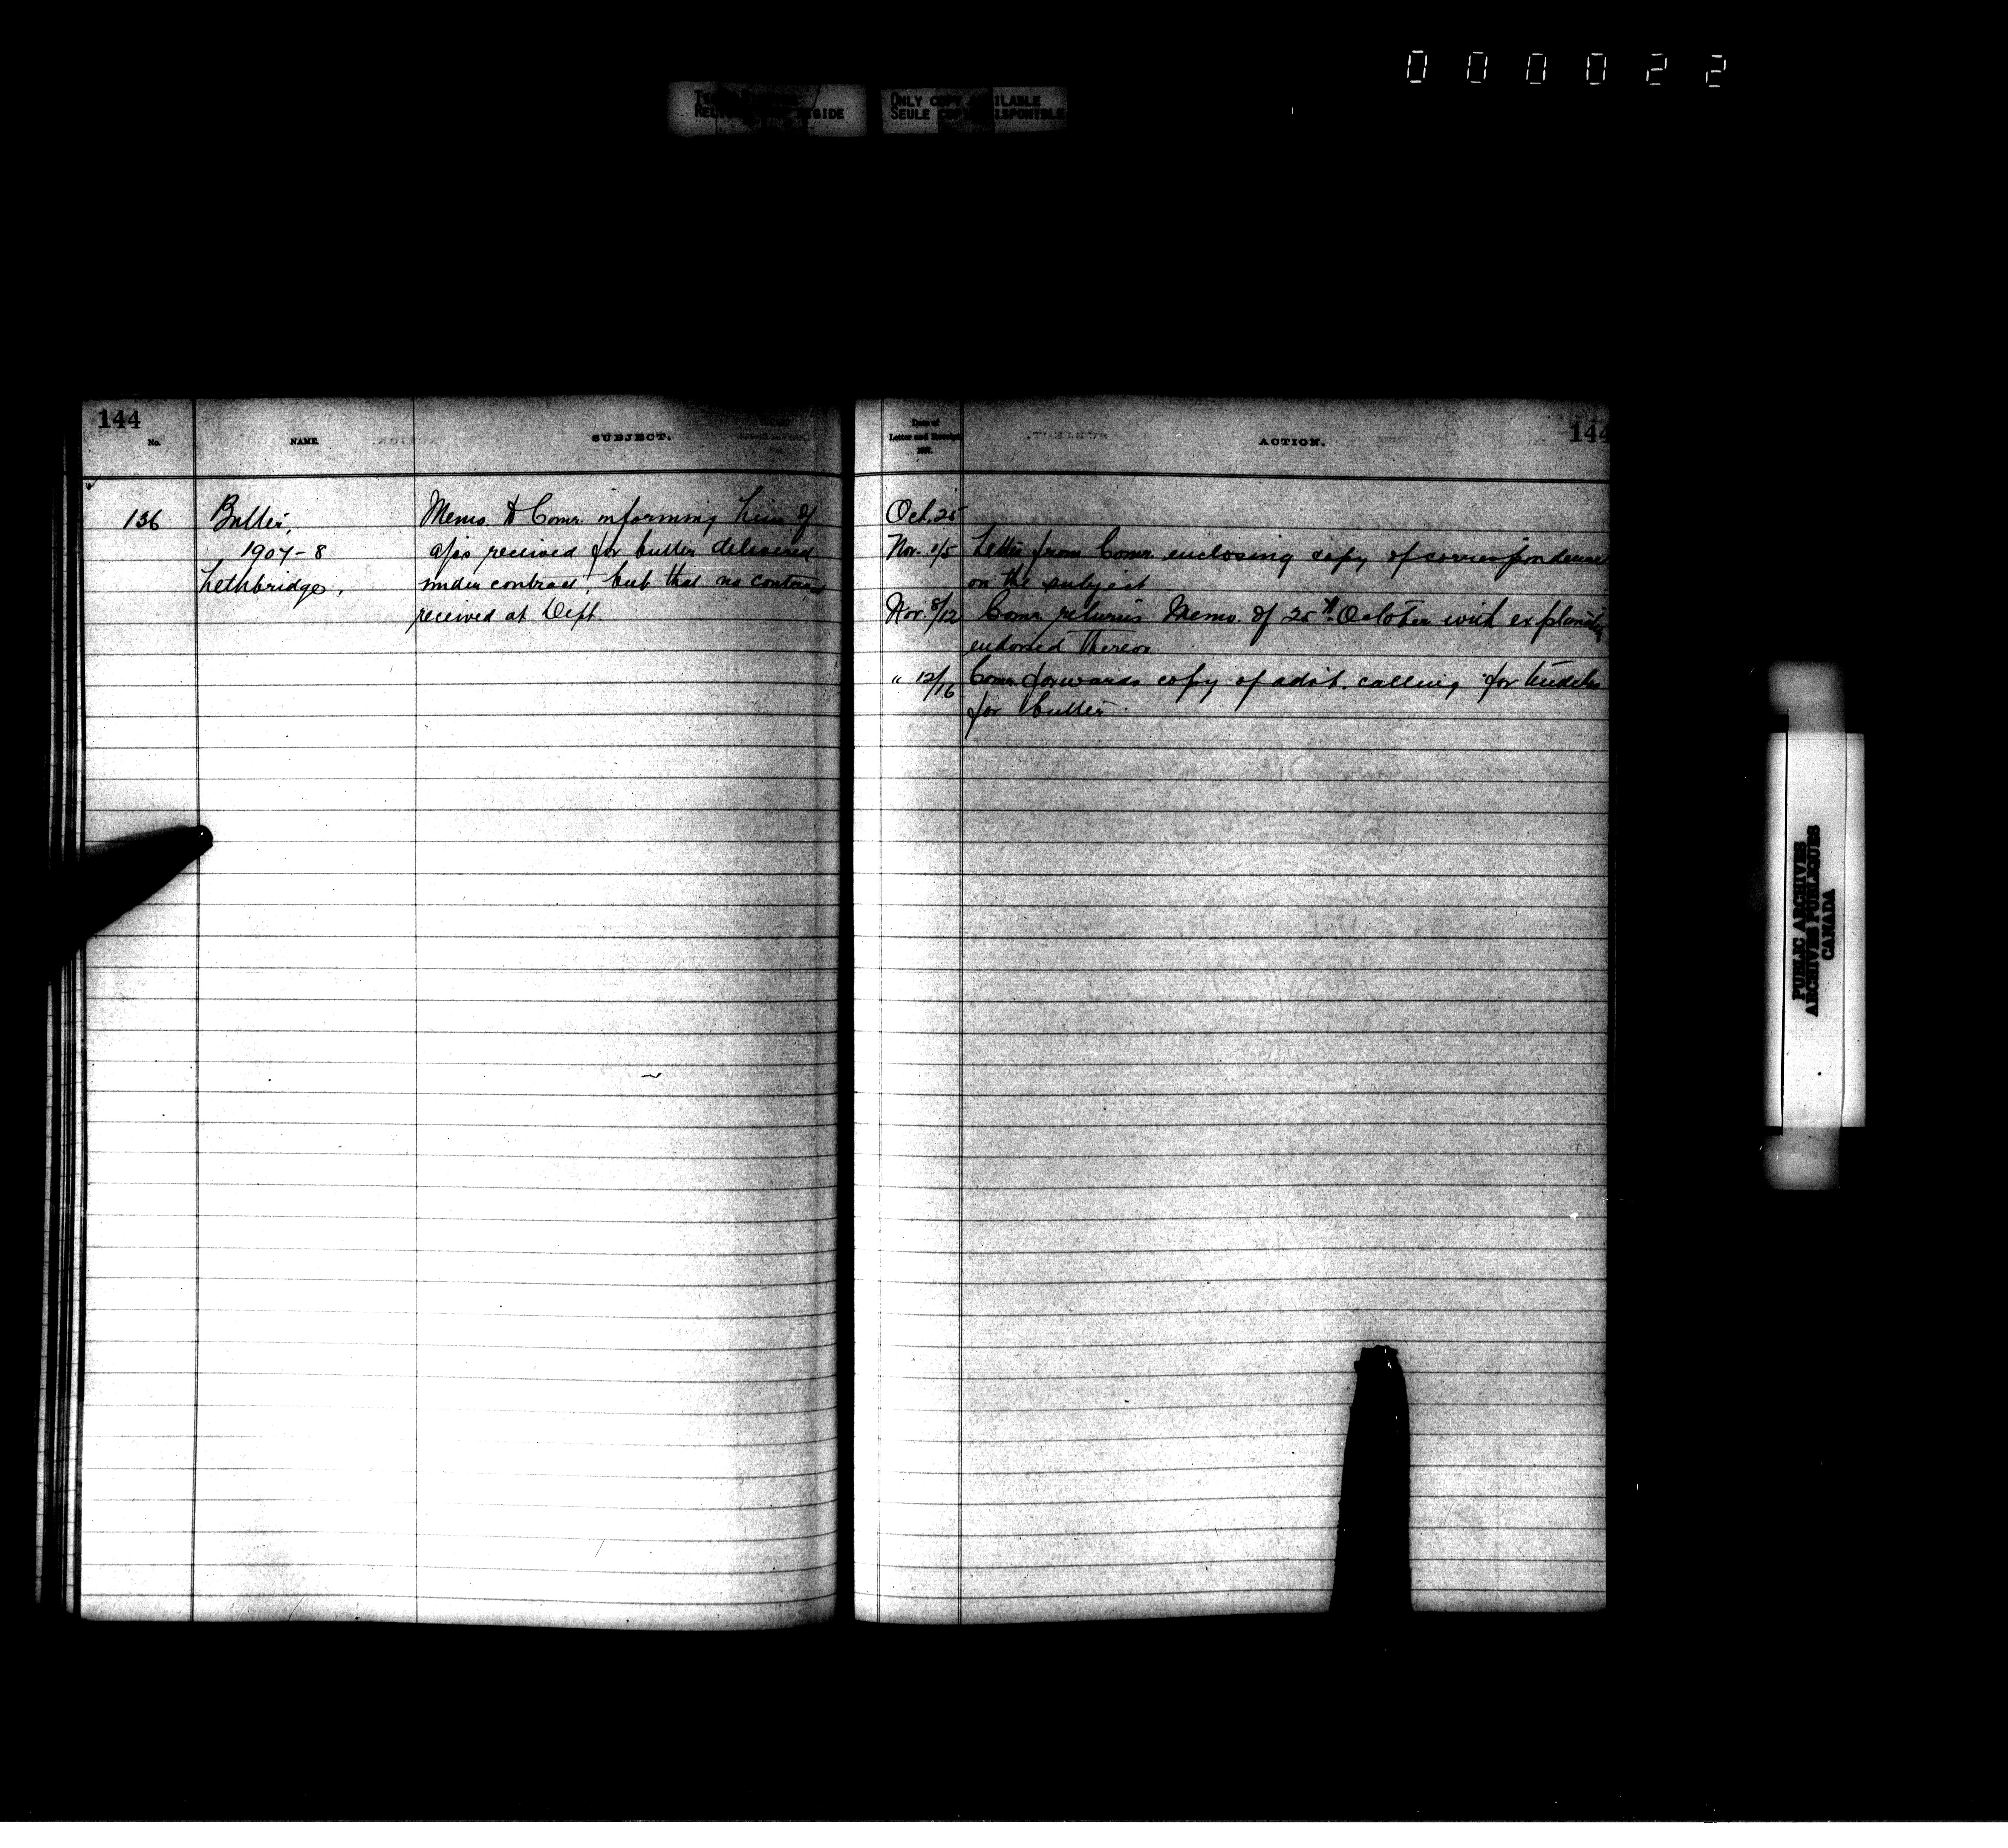 000022
ONLY COPY AVAILABLE
SEULE COPIE DISPONIBLE
144
No.
NAME.
SUBJECT.
136
Butter,
1907-8
Lethbridge,
Memo. to Comr. informing him of
a/cs received for butter delivered
under contract, but that no contract
received at Dept.
Date of
Letter and Receipt
144
ACTION.
Oct. 25
Nov. 1/5 Letter from Comr. enclosing copy of correspondence
on the subject
Nov. 8/12 Comr. returns Memo. of 25th October with explanation
endorsed thereon
" 12/16 Comr. forwards copy of advt. calling for tenders
for butter.
PUBLIC ARCHIVES
ARCHIVES PUBLIQUES
CANADA